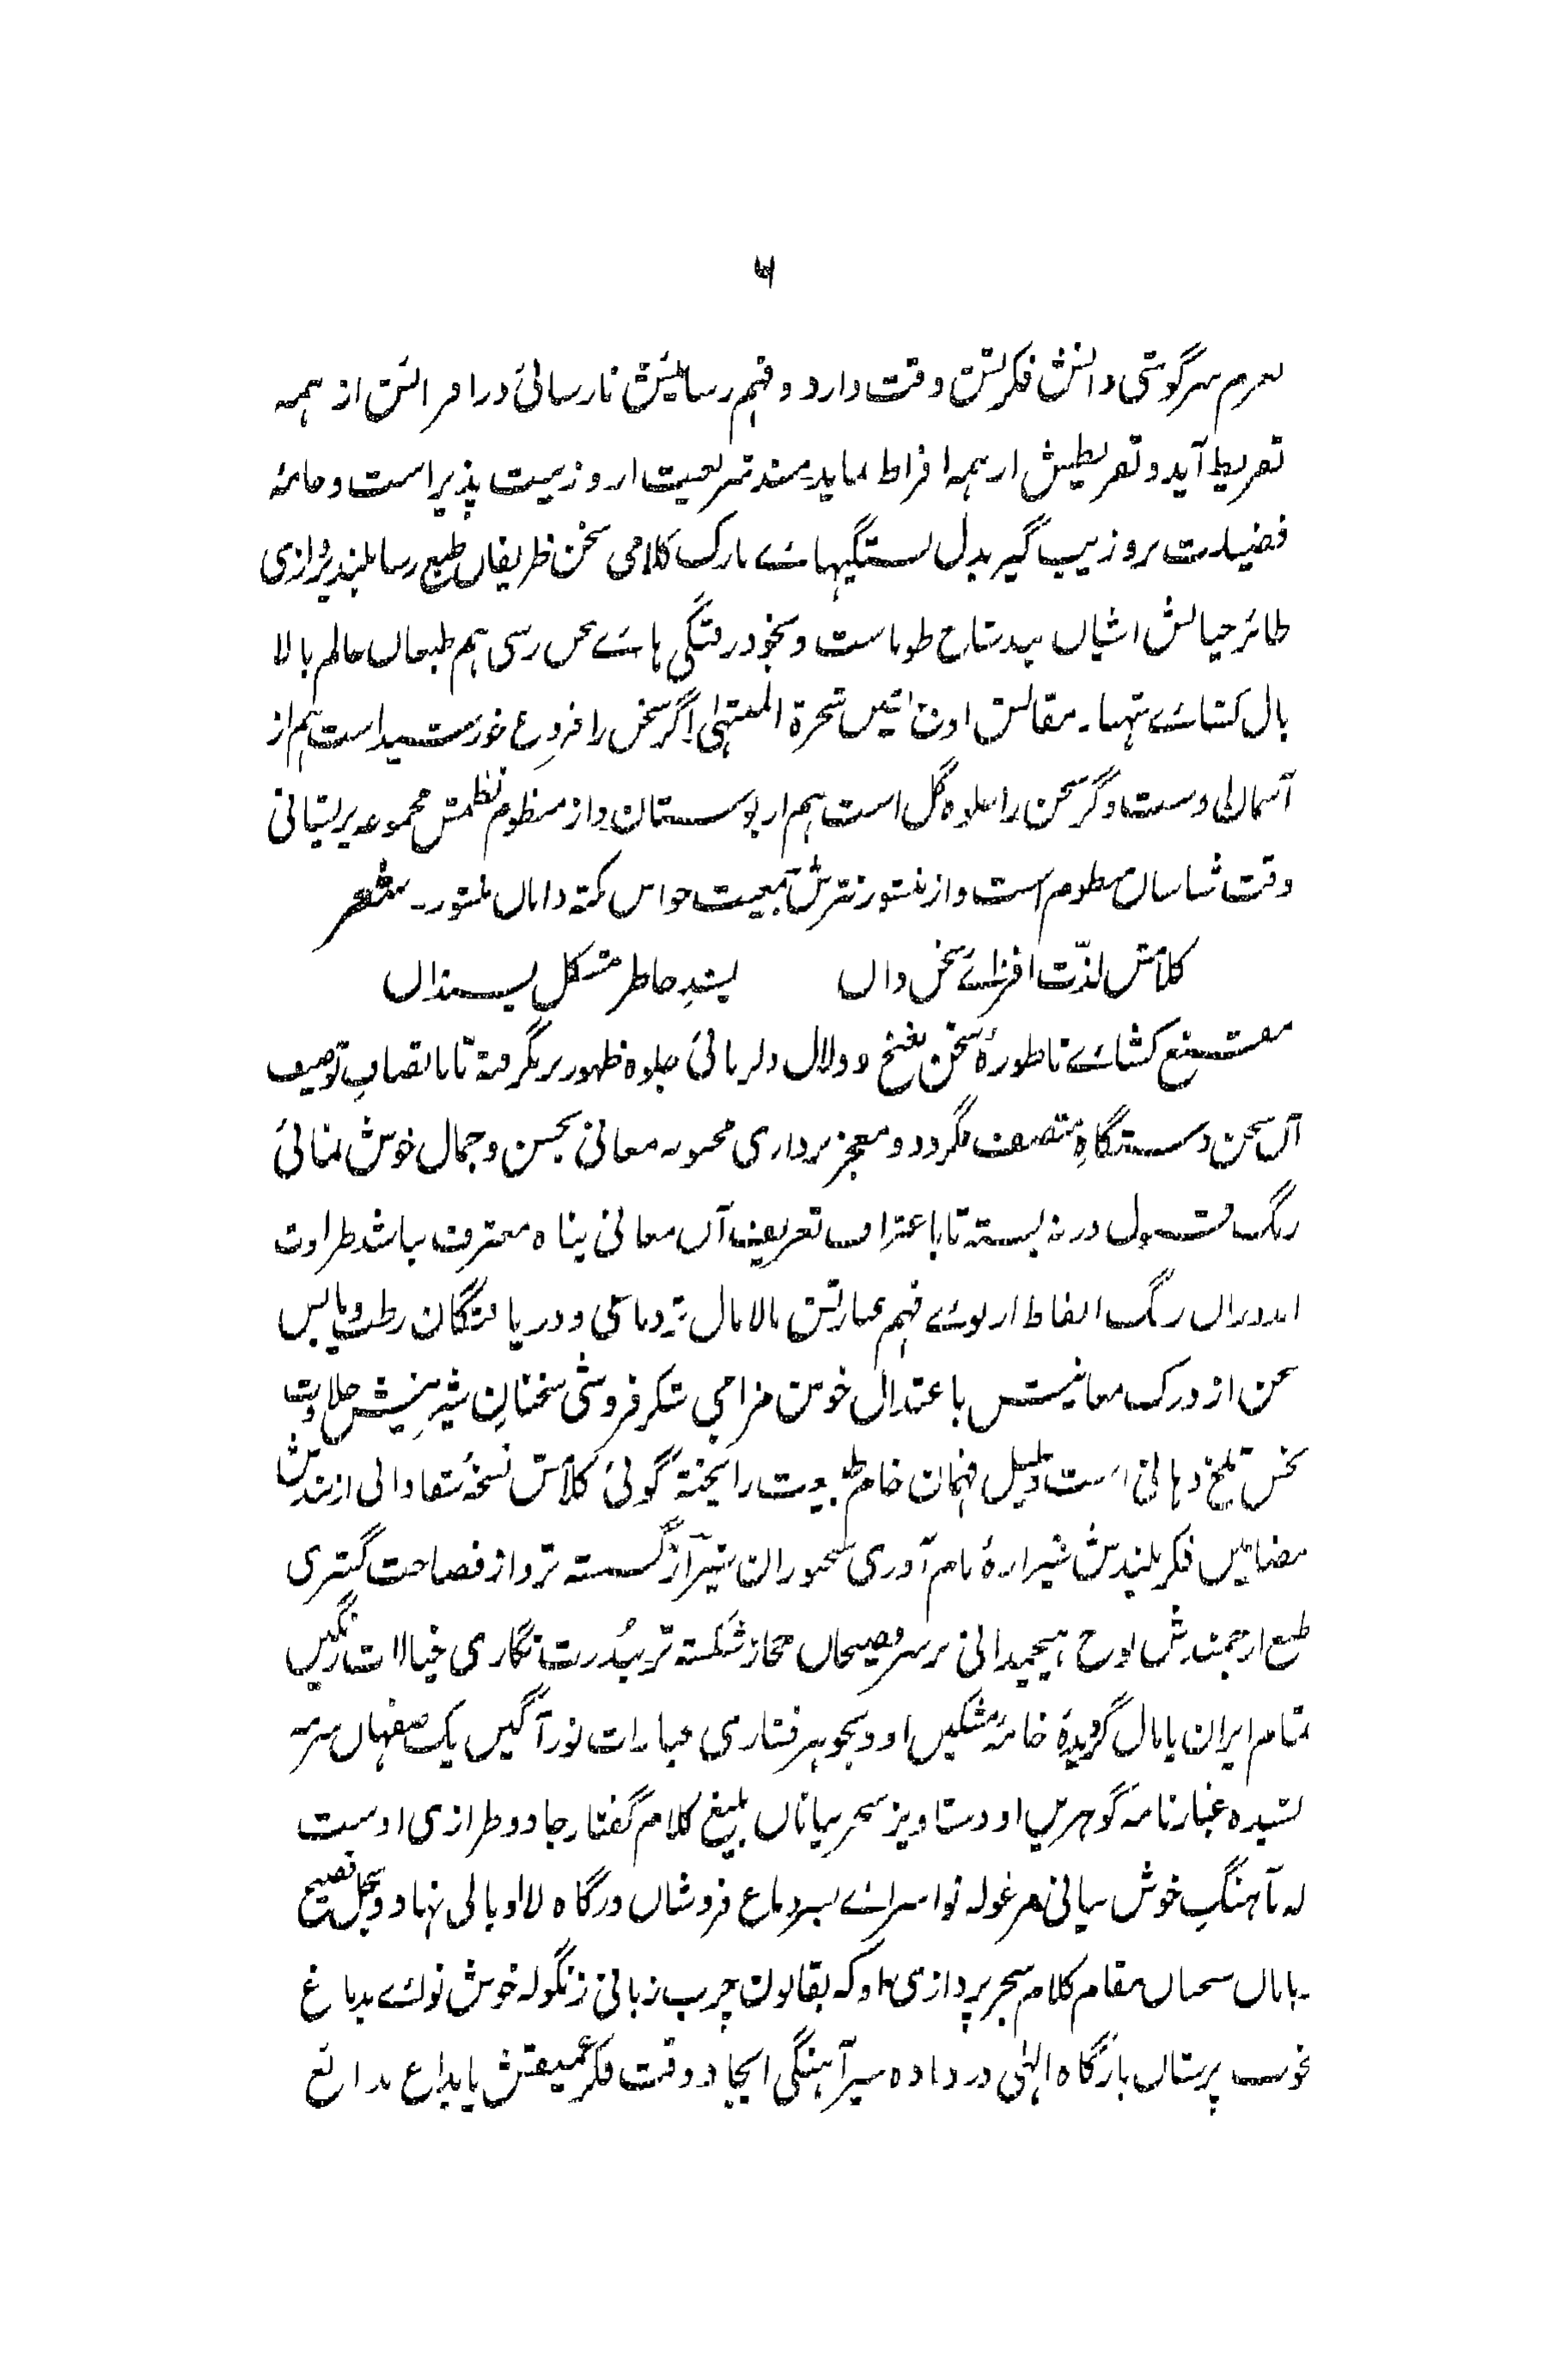 ۶
سرگوشی دانش فکرش دقت دارد و فہم رسایش نارسائی در افراطش از ہمہ
تفریط آید و تفریطش از ہمہ افراط نماید مسند شریعت از و زینت پذیر است و جامۂ
فضیلت برو زیب گیر بدل بستگیہائے نازک کلامی سخن ظریفاں طبع رسا بلند پروازی
طائر خیالش آشیاں بند شاخ طوباست و بخود رفتگی ہائے سخن رسی ہم طبعاں عالم بالا
بال کشائے تنہا۔ مقالش شجرۃ المنتہیٰ اگر سخن را فروغ خورشید است ہم از
آسمان اوست و گر سخن را جلوہ گل است ہم از بوستان و از منظوم نظمش مجموعہ پریشانی
دقت شناساں منظوم است و از منثور نثرش جمعیت حواس نکتہ داناں منثور۔ شعر
کلامش لذّت افزائے سخن داں پسندِ خاطر مشکل پسنداں
کشائے ناطورۂ سخن بغنج و دلال دلربائی جلوہ ظہور بر نگرفتہ تا باتصافِ توصیف
آں سخن دستگاہِ متصف نگردد و معجز پردازی محبوبہ معانی بحسن و جمال خوش نمائی
رنگ قبول در نہ بستہ تا باعتراف تعریف آں معانی پناہ معترف نباشد طراوت
اندوزاں رنگ الفاظ از بوئے فہم عبارتش مالامال تر دماغی و دریافتگان رطب و یابس
سخن از درک معانیش باعتدال خوش مزاجی شکر فروشی سخنانِ شیرینش حلاوت
بخش تلخ دہانی است قلیل فہمان خام طبیعت را پختہ گوئی کلامش نسخۂ شفا دانی از بندش
مضامیں فکر بلندش شیرازۂ نام آوری سخنوران شیراز گسستہ تر و از فصاحت گستری
طبع ارجمندش لوح ہیچمدانی بر سر فصیحاں حجاز شکستہ تر بندرت نگاری خیالات رنگیں
تمام ایران پامال گردیدۂ خامۂ مشکیں او و بجوہر فشاری عبارات نور آگیں یک صفہاں سرمہ
کشیدہ غبار نامہ گوہریں او دستاویز سحر بیاناں بلیغ کلام گفتار جادو طرازی اوست
کہ بآہنگِ خوش بیانی مرغولہ نوا سرائے بسر دماغ فروشاں درگاہ لا اوبالی نہاد و سجل فصیح
بیاناں سخناں مقام کلام سحر پردازی او کہ بقانون چرب زبانی زنگولہ خوش نوائے بدماغ
نخوت پرستاں بارگاہ الٰہی در دادہ سیر آہنگی ایجاد دقت فکر عمیقش بابداع بدائع